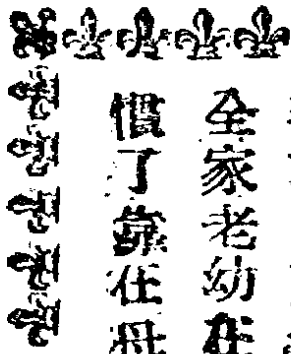 全家老幼在
慣了靠在母